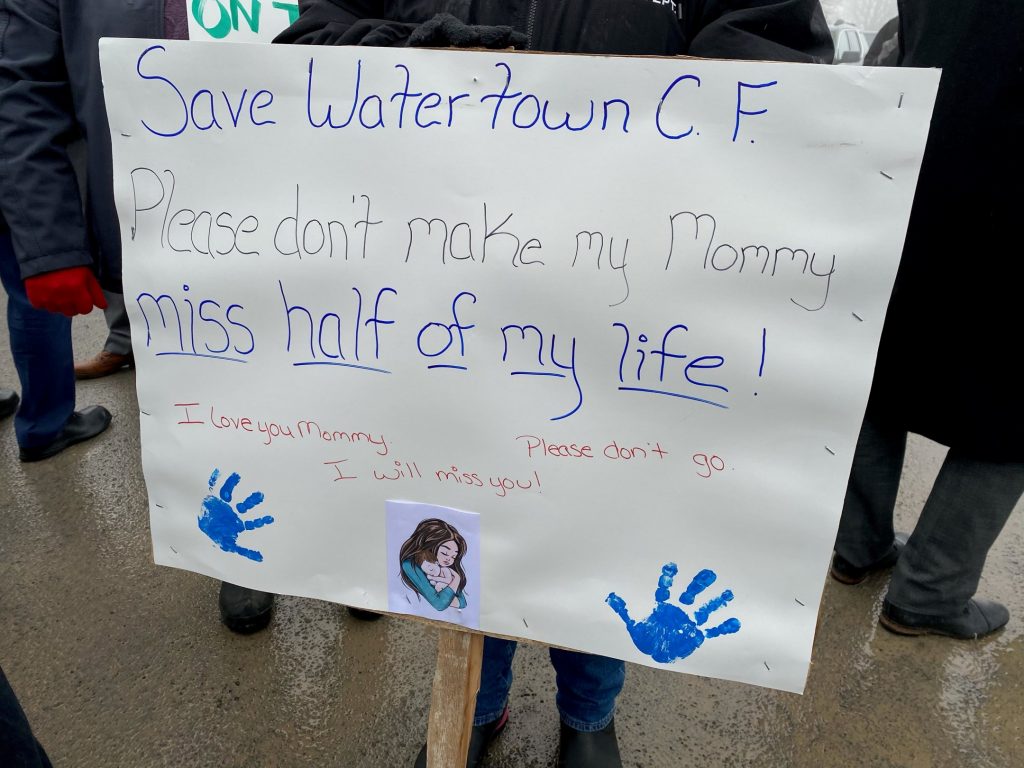 ON T
Save Watertown C. F.
Please don't make my Mommy
miss half of my life!
I love you Mommy.
Please don't go.
I will miss you!